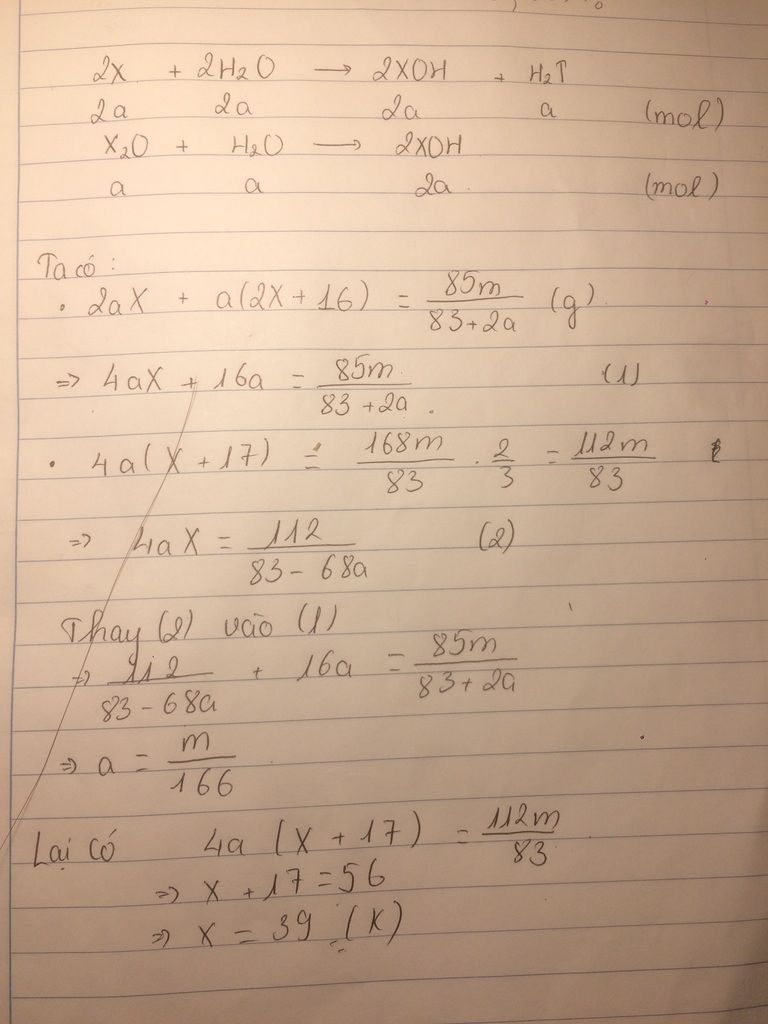 2X + 2H₂O → 2XOH + H₂↑
2a 2a 2a a (mol)
X₂O + H₂O → 2XOH
a a 2a (mol)
Ta có :
• 2aX + a(2X+16) = 85m/(83+2a) (g)
=> 4aX + 16a = 85m/(83+2a) (1)
• 4a(X+17) = 168m/83 . 2/3 = 112m/83
=> 4aX = 112/(83-68a) (2)
Thay (2) vào (1)
=> 112/(83-68a) + 16a = 85m/(83+2a)
=> a = m/166
Lại có 4a (X+17) = 112m/83
=> X + 17 = 56
=> X = 39 (K)